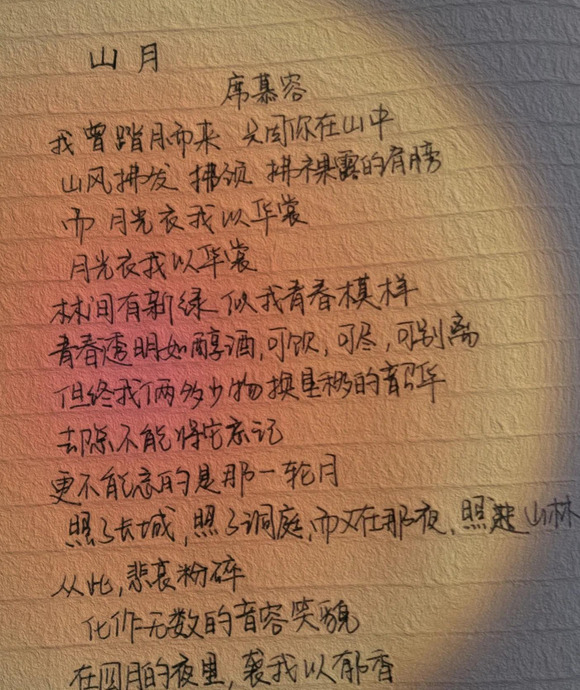 山月
席慕容
我曾踏月而来 只因你在山中
山风拂发 拂颈 拂裸露的肩膀
而月光衣我以华裳
月光衣我以华裳
林间有新绿 似我青春模样
青春透明如醇酒,可饮,可尽,可别离
但终我俩多少物换星移的韶华
却总不能将它忘记
更不能忘的是那一轮月
照了长城,照了洞庭,而又在那夜,照进山林
从此,悲哀粉碎
化作无数的音容笑貌
在四月的夜里,袭我以郁香